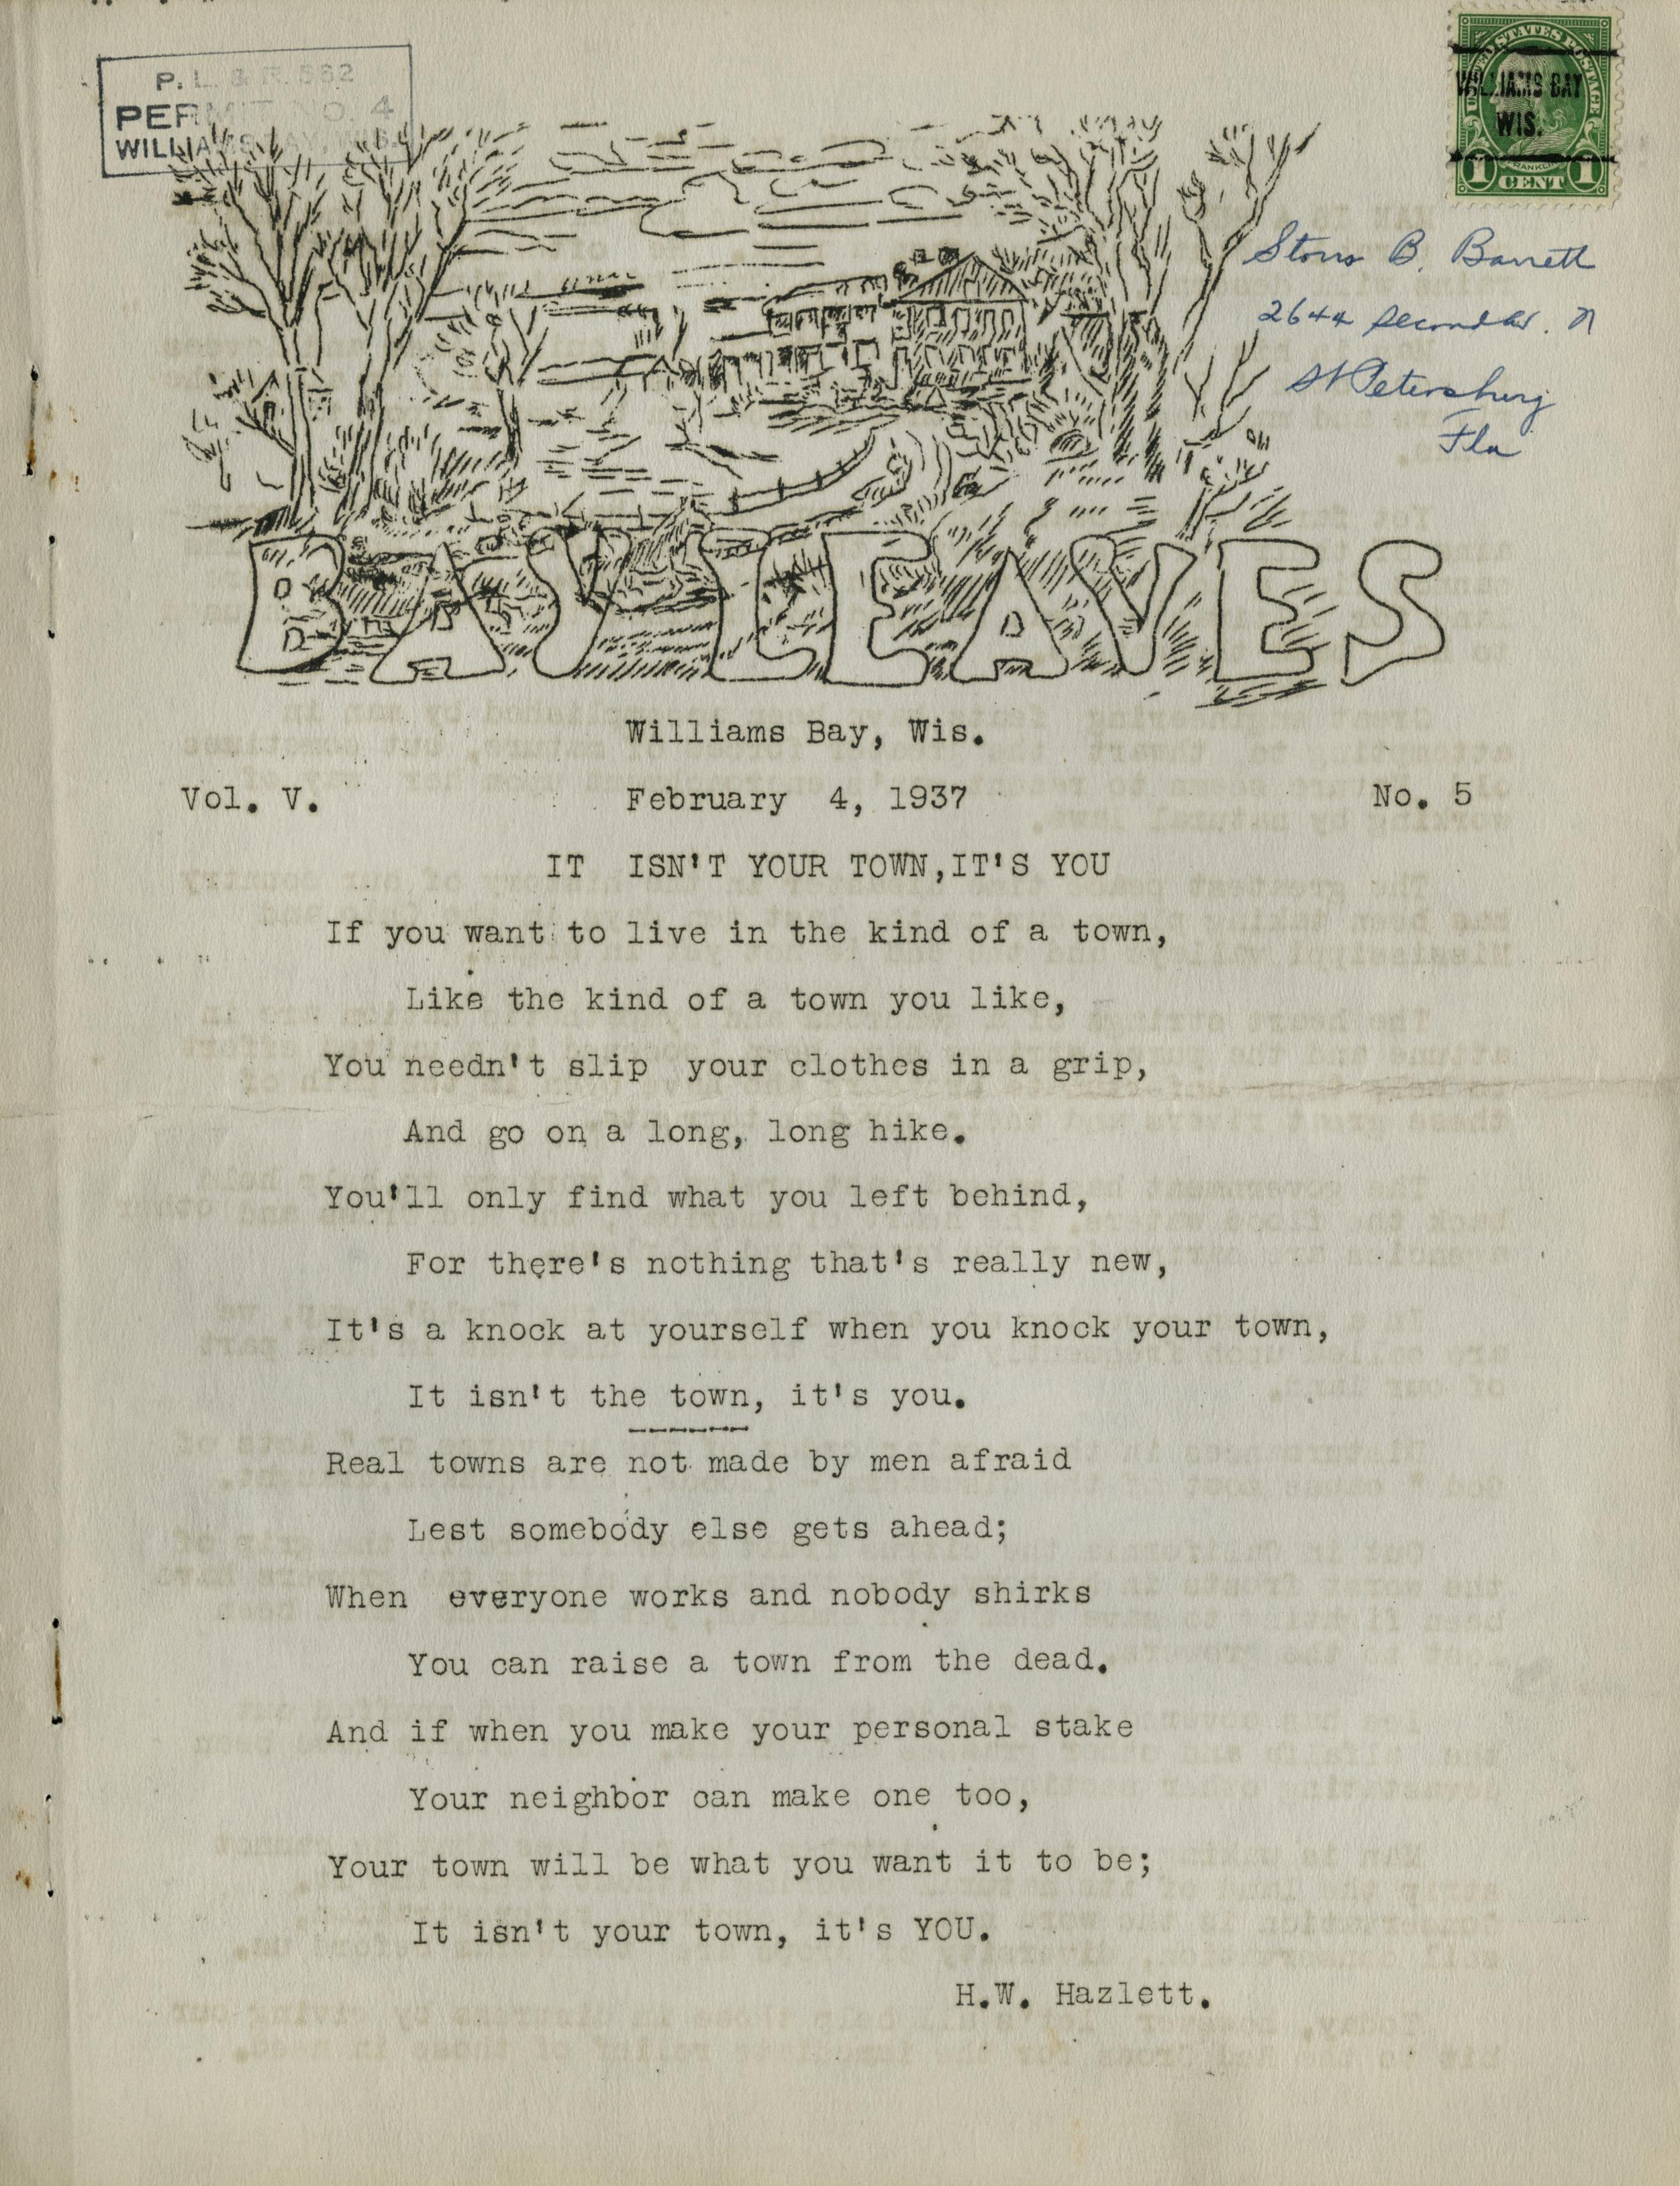 P. L. & R. 562
PERMIT NO. 4
WILLIAMS BAY, WIS.
UNITED STATES POSTAGE
WILLIAMS BAY
WIS.
FRANKLIN
1 CENT 1
Storrs B. Barrett
2644 Second Av. N
St Petersburg
Fla
BAY LEAVES
Williams Bay, Wis.
Vol. V. February 4, 1937 No. 5
IT ISN'T YOUR TOWN,IT'S YOU
If you want to live in the kind of a town,
Like the kind of a town you like,
You needn't slip your clothes in a grip,
And go on a long, long hike.
You'll only find what you left behind,
For there's nothing that's really new,
It's a knock at yourself when you knock your town,
It isn't the town, it's you.
------
Real towns are not made by men afraid
Lest somebody else gets ahead;
When everyone works and nobody shirks
You can raise a town from the dead.
And if when you make your personal stake
Your neighbor can make one too,
Your town will be what you want it to be;
It isn't your town, it's YOU.
H.W. Hazlett.